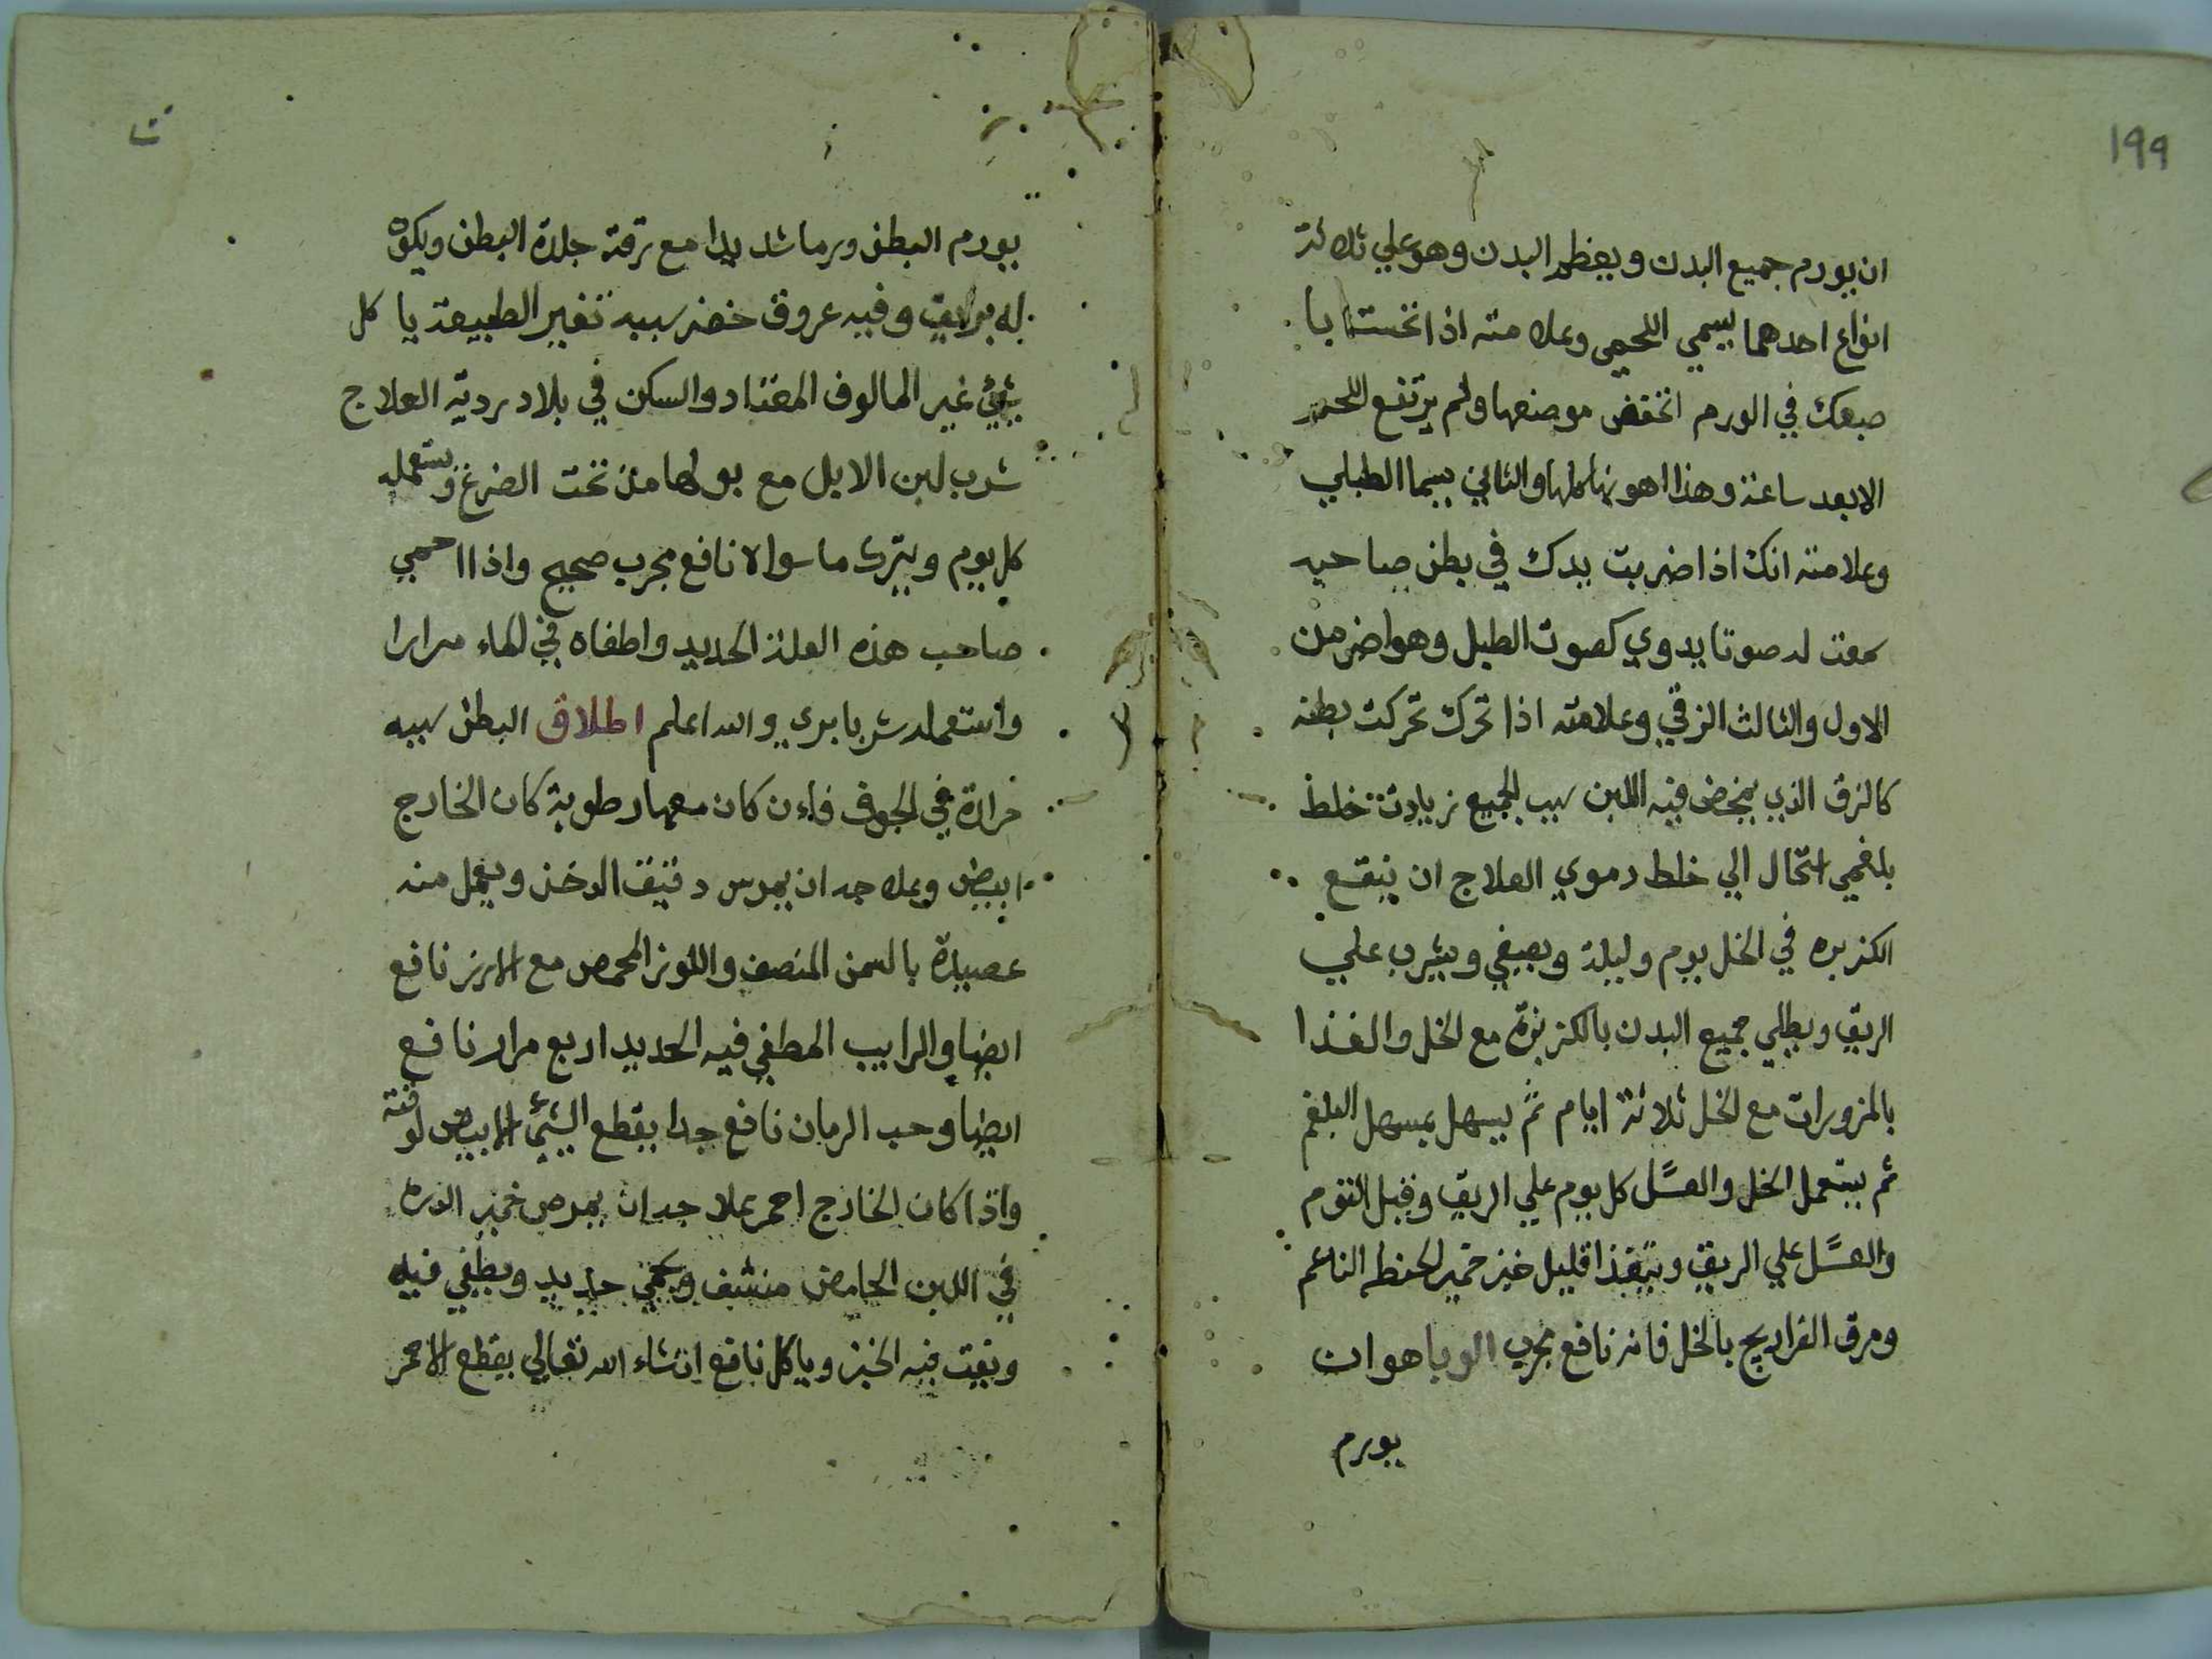 ١٩٩
ان يورم جميع البدن ويعظم البدن وهو علي ثلاثة
انواع احدهما يسمي اللحمي وعلامته اذا اتختت با
صبعك في الورم انخفض موضعها ولم يرتفع اللحم
الا بعد ساعة وهذا اهونها كلها والثاني يسما الطبلي
وعلامته انك اذا ضربت بيدك في بطن صاحبه
سمعت له صوتا يدوي كصوت الطبل وهو اضر من
الاول والثالث الزقي وعلامته اذا تحرك تحركت بطنه
كالزق الذي يمخض فيه اللبن سبب الجميع زيادت خلط
بلغمي استحال الي خلط دموي العلاج ان ينقع
الكزبره في الخل يوم وليلة ويصفي ويشرب علي
الريق ويطلي جميع البدن بالكزبرة مع الخل والغذا
بالمزورات مع الخل ثلاثة ايام ثم يسهل بمسهل البلغم
ثم يستعمل الخل والعسل كل يوم علي الريق وقبل النوم
والعسل علي الريق ويتغذا قليل خبز خمير الحنطه الناعم
ومرق الفراريج بالخل فانه نافع مجرب الوبا هو ان
يورم
يورم البطن ورما شديدا مع ترقة جلدة البطن ويكون
له بوايق وفيه عروق خضر سببه تغير الطبيعة يا كل
شيئ غير المالوف المعتاد والسكن في بلاد ردية العلاج
شرب لبن الابل مع بولها من تحت الضرع ويستعمله
كل يوم ويترك ما سواه نافع مجرب صحيح واذا احمي
صاحب هذه العلة الحديد واطفاه في الماء مرارا
واستعمله شربا بري والله اعلم اطلاق البطن سببه
حرارة في الجوف فاءن كان معها رطوبة كان الخارج
ابيض وعلاجه ان يمرس دقيق الدخن ويعمل منه
عصيدة بالسمن المنصف واللوز المحمص مع الارز نافع
ايضا والرايب المطفي فيه الحديد اربع مرار نافع
ايضا وحب الرمان نافع جدا يقطع الشئ الابيض لوقته
واذا كان الخارج احمر علاجه ان يمرص خمير الذره
في اللبن الحامض منشف ويحمي حديد ويطفي فيه
ويفت فيه الخبز وياكل نافع انشاء الله تعالي يقطع الاحمر